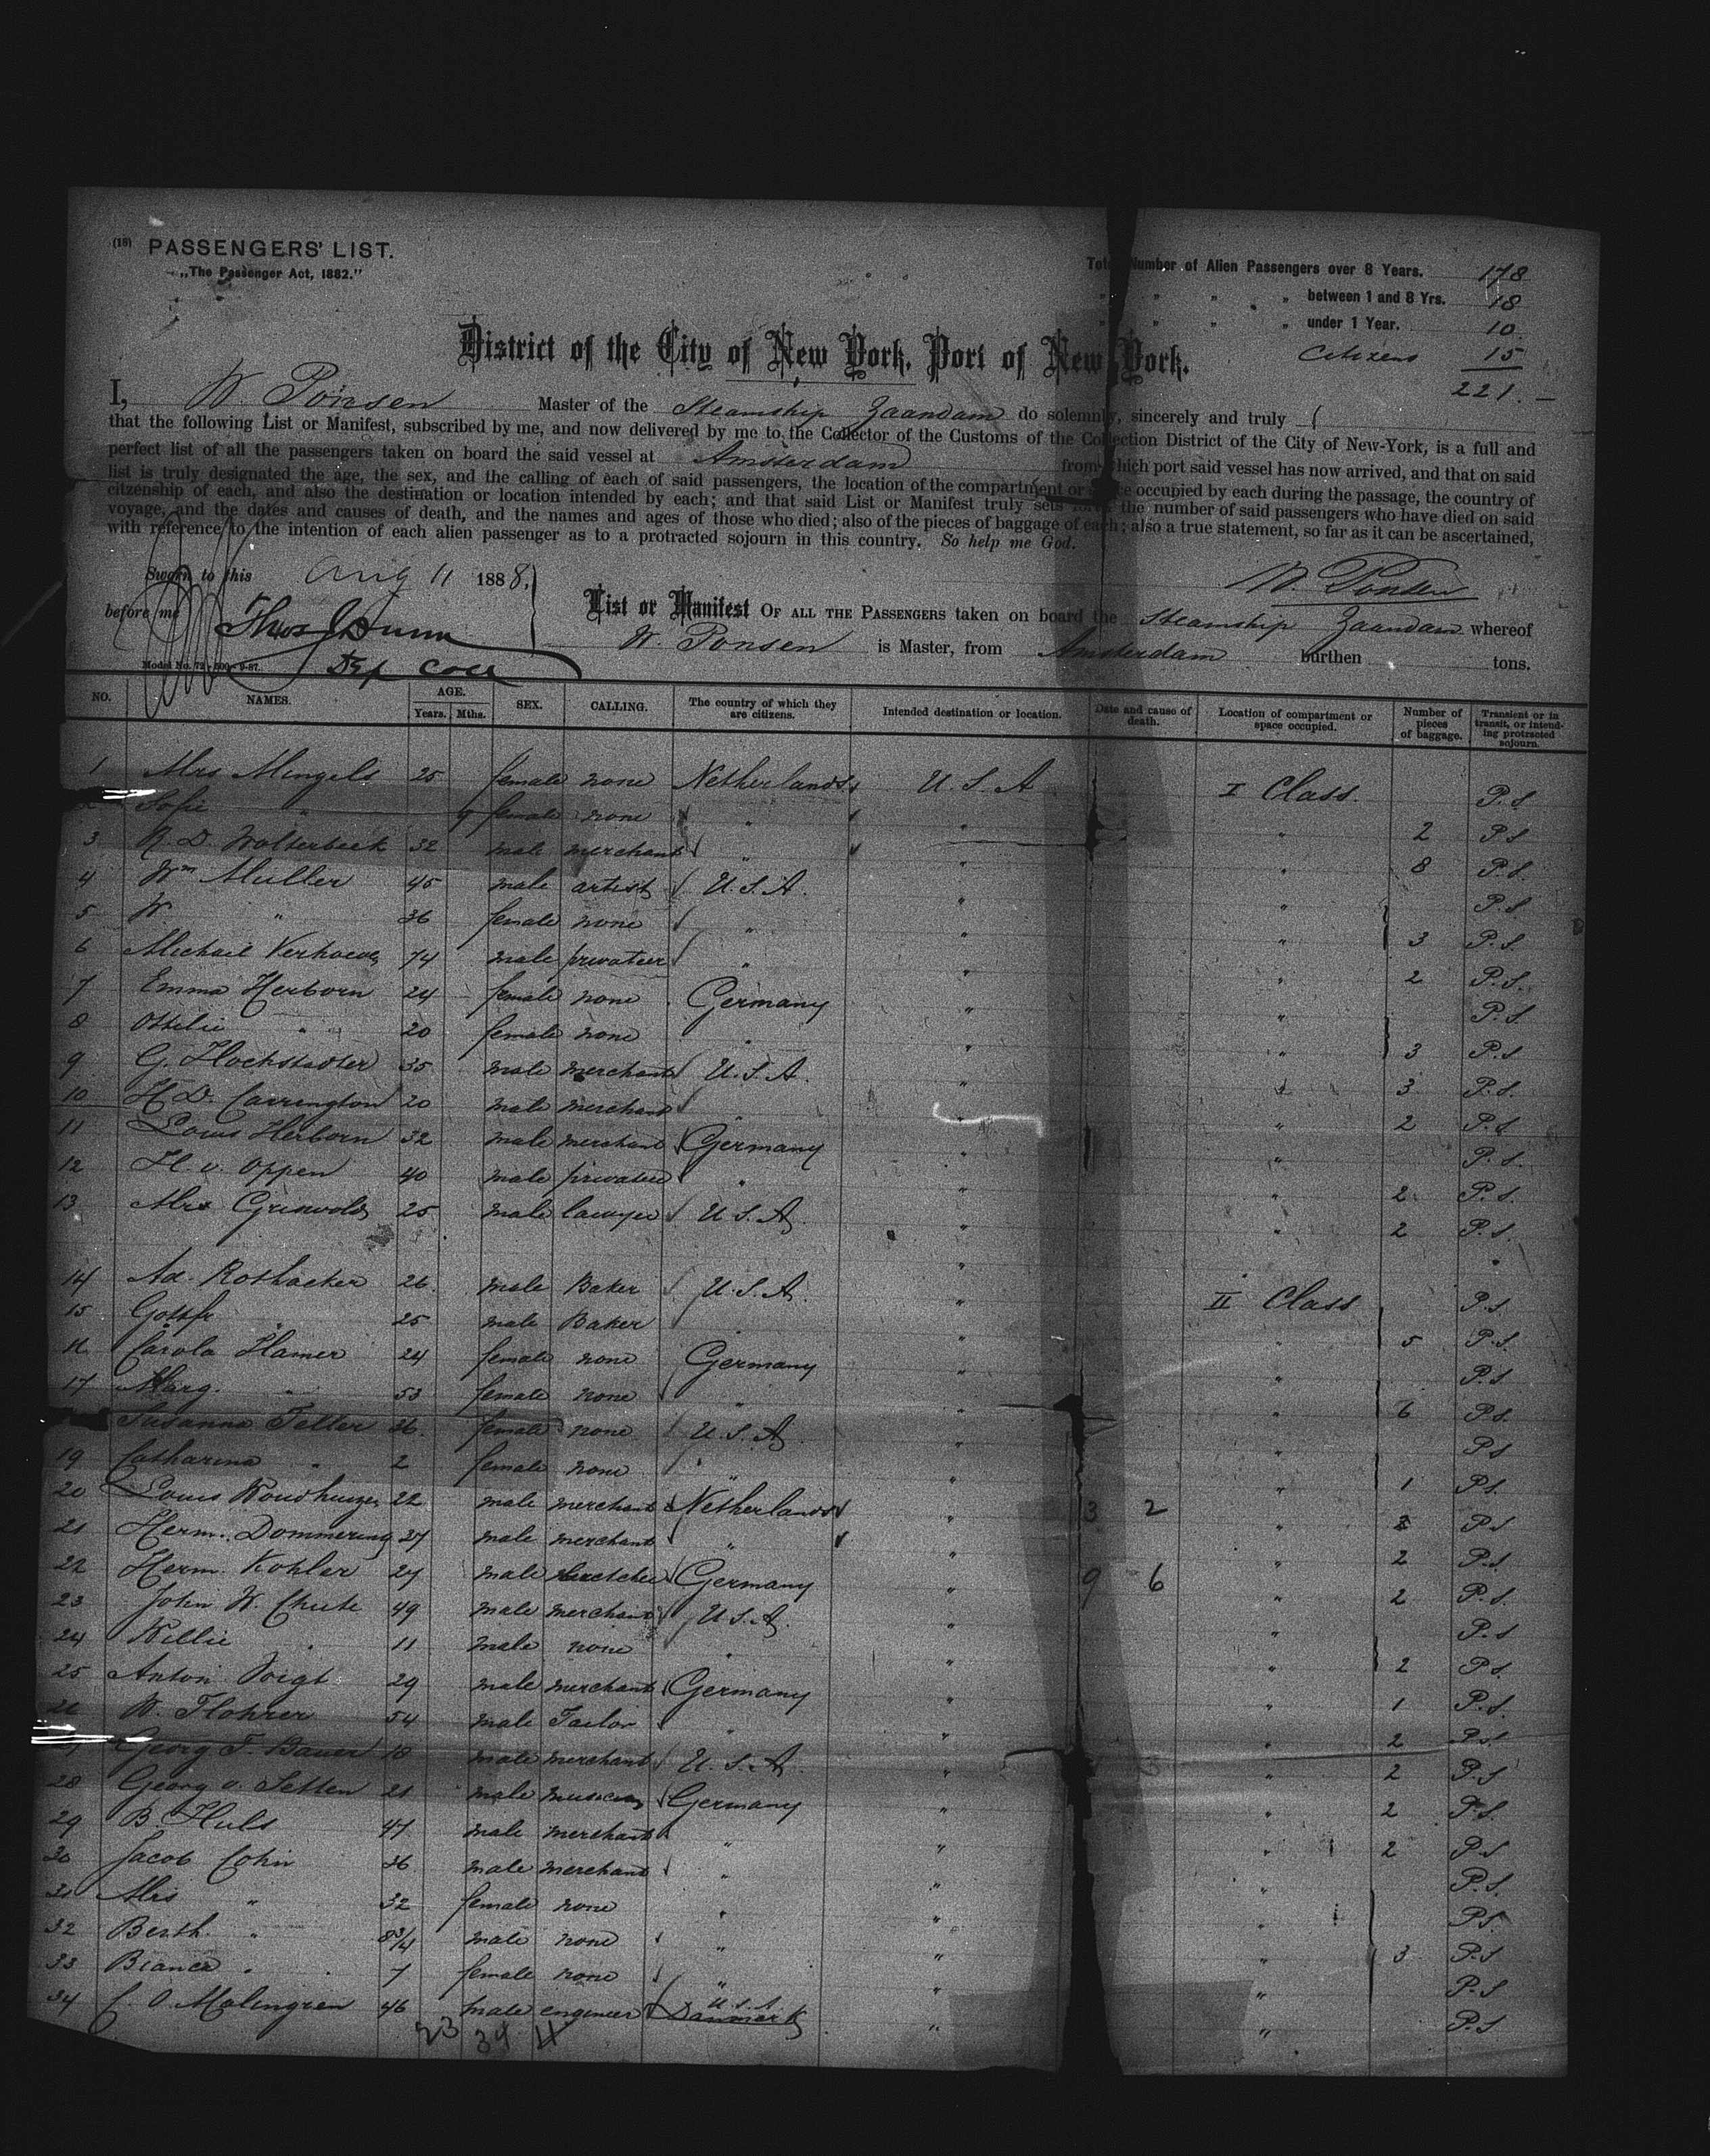 (18) PASSENGERS' LIST.
„The Passenger Act, 1882."
Total Number of Alien Passengers over 8 Years. 178
" " " " between 1 and 8 Yrs. 18
" " " " under 1 Year. 10
Citizens 15
221.
District of the City of New York, Port of New York.
I, W. Ponsen Master of the Steamship Zaandam do solemnly, sincerely and truly
that the following List or Manifest, subscribed by me, and now delivered by me to the Collector of the Customs of the Collection District of the City of New-York, is a full and
perfect list of all the passengers taken on board the said vessel at Amsterdam from which port said vessel has now arrived, and that on said
list is truly designated the age, the sex, and the calling of each of said passengers, the location of the compartment or space occupied by each during the passage, the country of
citzenship of each, and also the destination or location intended by each; and that said List or Manifest truly sets forth the number of said passengers who have died on said
voyage, and the dates and causes of death, and the names and ages of those who died; also of the pieces of baggage of each; also a true statement, so far as it can be ascertained,
with reference to the intention of each alien passenger as to a protracted sojourn in this country. So help me God.
Sworn to this Aug 11 1888,
W. Ponsen
before me Thos J Dunn
Dep Coll
List or Manifest OF ALL THE PASSENGERS taken on board the Steamship Zaandam whereof
W. Ponsen is Master, from Amsterdam burthen tons.
Model No. 72 - 500 - 9-87.
NO. NAMES. AGE. Years. Mths. SEX. CALLING. The country of which they are citizens. Intended destination or location. Date and cause of death. Location of compartment or space occupied. Number of pieces of baggage. Transient or in transit, or intending protracted sojourn.
1 Mrs Mingels 25 female none Netherlands U.S.A I Class. P.S.
2 Sofie " 9 female none " " " 2 P.S
3 R. D. Wolterbeek 32 male merchant " " " 8 P.S.
4 Wm Muller 45 male artist U.S.A. " " P.S.
5 W. " 36 female none " " " 3 P.S.
6 Michael Verhoeven 74 male privateer " " " 2 P.S.
7 Emma Herborn 24 female none Germany " " P.S.
8 Ottilie " 20 female none " " " 3 P.S
9 G. Hochstadter 35 male merchant U.S.A. " " 3 P.S.
10 H. D. Carrington 20 male merchant " " " 2 P.S
11 Louis Herborn 32 male merchant Germany " " P.S.
12 H. v. Oppen 40 male privateer " " " 2 P.S.
13 Mrs Griswold 25 male lawyer U.S.A. " " 2 P.S.
14 Ad. Rothacker 26 male Baker U.S.A. " II Class P.S
15 Gottfr " 25 male Baker " " " 5 P.S.
16 Carola Hamer 24 female none Germany " " P.S
17 Marg. " 53 female none " " " 6 P.S.
Susanna Teller 36 female none U.S.A. " " P.S
19 Catharina " 2 female none " " " 1 P.S.
20 Louis Woudhuyzen 22 male merchant Netherlands " 3 2 " 2 P.S
21 Herm. Dommering 27 male merchant " " " 2 P.S
22 Herm. Kohler 27 male Germany " 9 6 " 2 P.S.
23 John W. Chute 49 male merchant U.S.A. " " P.S
24 Willie " 11 male none " " " 2 P.S.
25 Anton Voigt 29 male merchant Germany " " 1 P.S.
26 W. Flohrer 54 male Tailor " " " 2 P.S
27 Georg F. Bauer 18 male merchant U.S.A. " " 2 P.S
28 Georg v. Setten 21 male musician Germany " " 2 P.S.
29 B. Huls 47 male merchant " " " 2 P.S
30 Jacob Cohn 36 male merchant " " " P.S.
31 Mrs " 32 female none " " " P.S.
32 Berth. " 8 3/4 male none " " " 3 P.S
33 Bianca " 7 female none " " " P.S
34 C. O. Malmgren 46 male engineer U.S.A. Danmark " " P.S
23 34 4